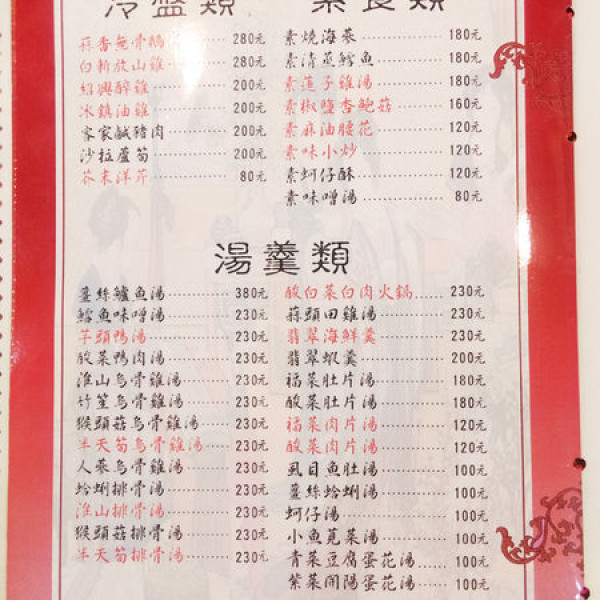 冷盤類
蒜香無骨鵝 280元
白斬放山雞 280元
紹興醉雞 200元
冰鎮油雞 200元
客家鹹豬肉 200元
沙拉蘆筍 200元
芥末洋芹 80元
素食類
素燒海蔘 180元
素清蒸鱈魚 180元
素蓮子雞湯 180元
素椒鹽杏鮑菇 160元
素麻油腰花 120元
素味小炒 120元
素蚵仔酥 120元
素味噌湯 80元
湯羹類
薑絲鱸魚湯 380元
鱈魚味噌湯 230元
芋頭鴨湯 230元
酸菜鴨肉湯 230元
淮山烏骨雞湯 230元
竹笙烏骨雞湯 230元
猴頭菇烏骨雞湯 230元
半天筍烏骨雞湯 230元
人蔘烏骨雞湯 230元
蛤蜊排骨湯 230元
淮山排骨湯 230元
猴頭菇排骨湯 230元
半天筍排骨湯 230元
酸白菜白肉火鍋 230元
蒜頭田雞湯 230元
翡翠海鮮羹 230元
翡翠蝦羹 200元
福菜肚片湯 180元
酸菜肚片湯 180元
福菜肉片湯 120元
酸菜肉片湯 120元
虱目魚肚湯 100元
薑絲蛤蜊湯 100元
蚵仔湯 100元
小魚莧菜湯 100元
青菜豆腐蛋花湯 100元
紫菜開陽蛋花湯 100元